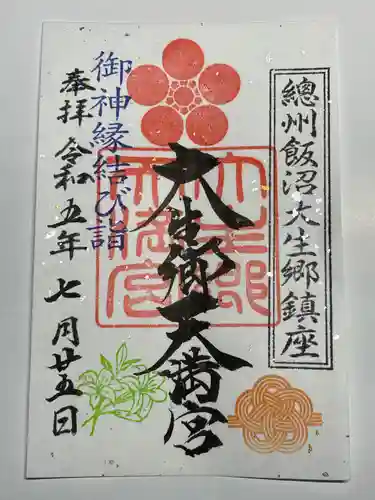 總州飯沼大生郷鎮座
大生郷天満宮
御神縁結び詣
奉拝 令和五年七月廿五日